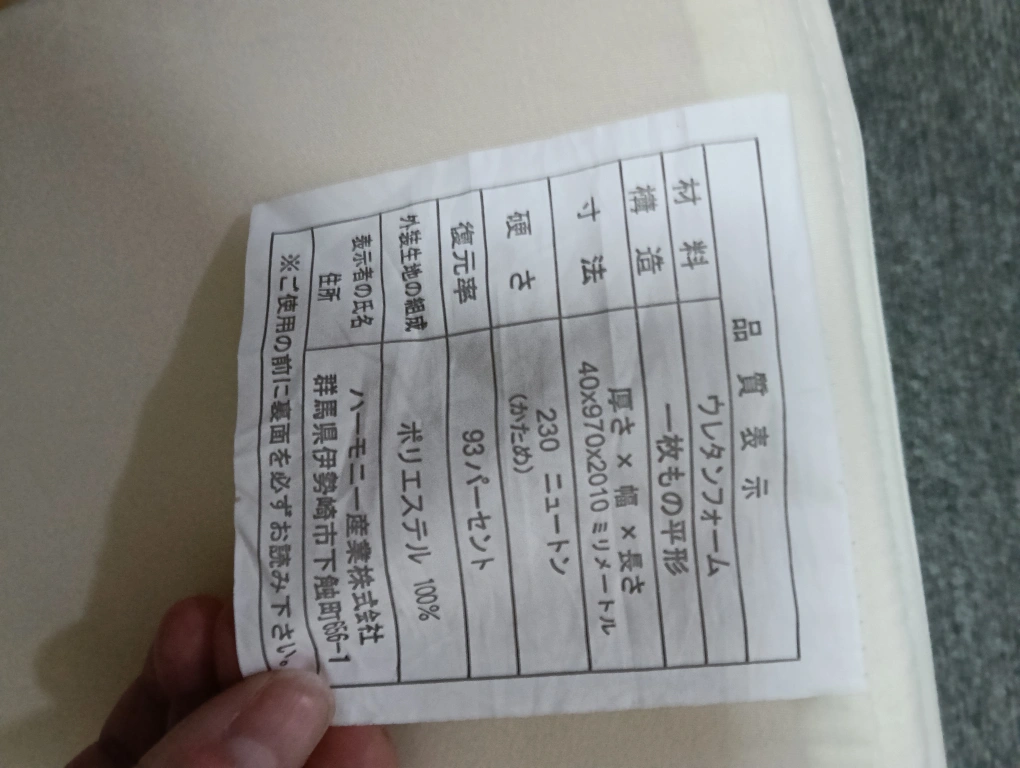 品質表示
材料 ウレタンフォーム
構造 一枚もの平形
寸法 厚さ × 幅 × 長さ
40x970x2010ミリメートル
硬さ 230 ニュートン
(かため)
復元率 93パーセント
外装生地の組成 ポリエステル 100%
表示者の氏名 ハーモニー産業株式会社
住所 群馬県伊勢崎市下触町656-1
※ご使用の前に裏面を必ずお読み下さい。